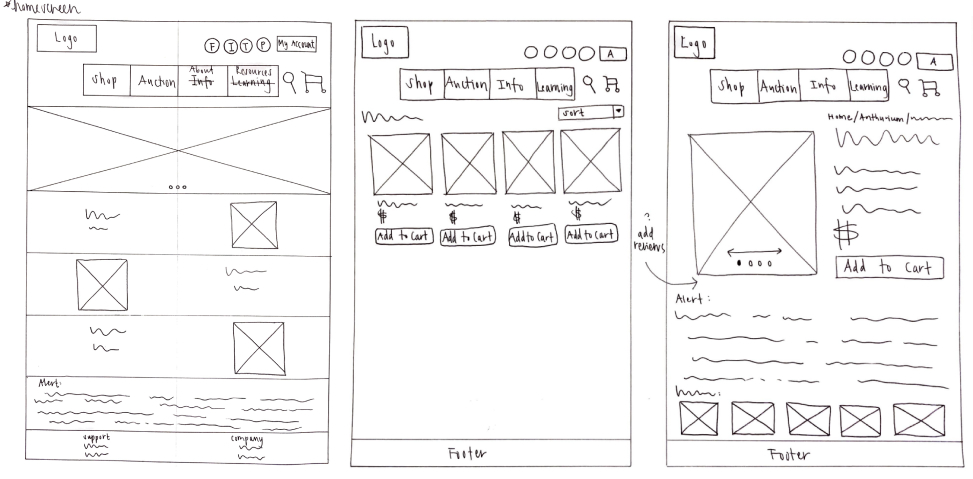 *homescreen
Logo
F I T P My Account
Shop Auction About Info Resources Learning
Alert:
support company
Logo
A
Shop Auction Info Learning
sort
$ $ $ $
Add to Cart Add to Cart Add to Cart Add to Cart
Footer
? add
reviews
Logo
A
Shop Auction Info Learning
Home/Anthurium/
$
Add to Cart
Alert:
Footer